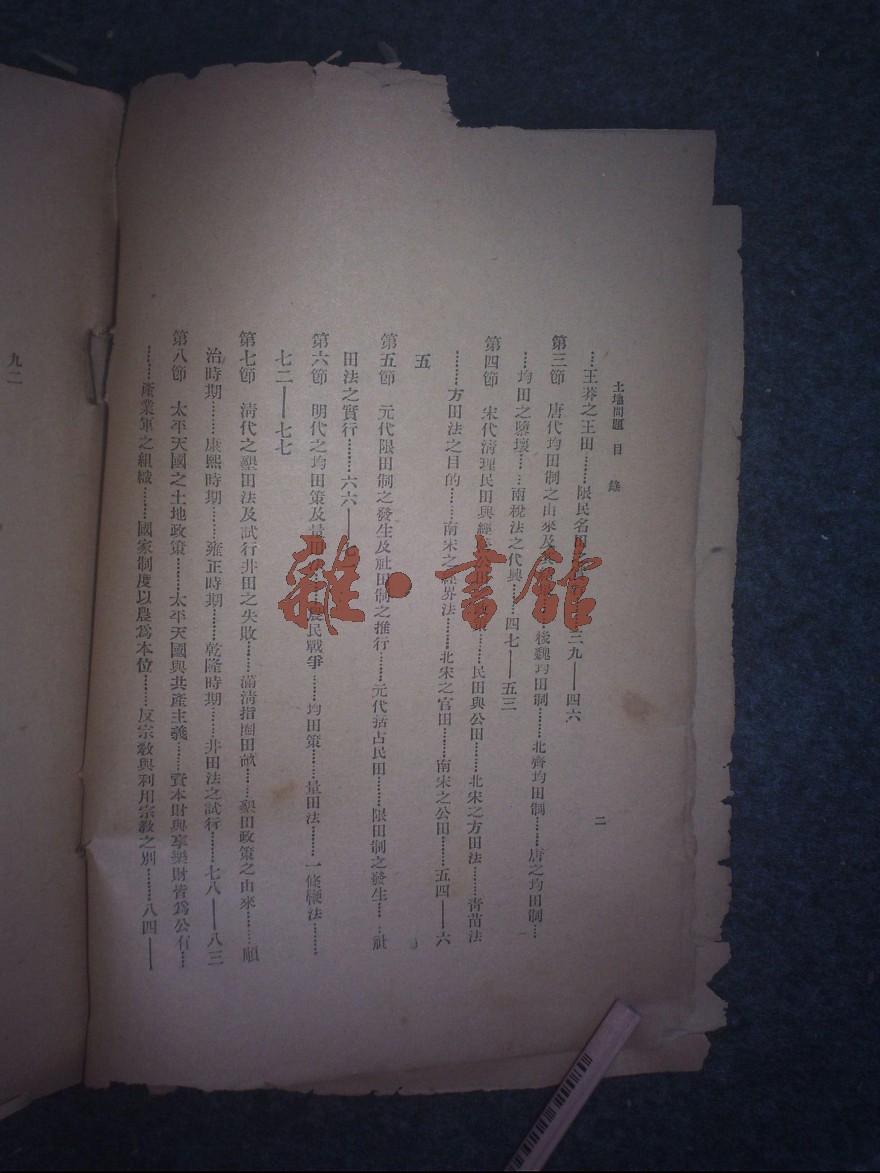 土地問題　目　錄
二
……王莽之王田……限民名田……三九——四六
第三節　唐代均田制之由來及……後魏均田制……北齊均田制……唐之均田制…
…均田之隳壞……兩稅法之代興……四七——五三
第四節　宋代清理民田與經……公田……民田與公田……北宋之方田法……青苗法
……方田法之目的……南宋之經界法……北宋之官田……南宋之公田……五四——六
五
第五節　元代限田制之發生及社田制之推行……元代括占民田……限田制之發生……社
田法之實行……六六——
第六節　明代之均田策及量田……農民戰爭……均田策……量田法……一條鞭法……
七二——七七
第七節　清代之墾田法及試行井田之失敗……滿清指圈田畝……墾田政策之由來……順
治時期……康熙時期……雍正時期……乾隆時期……井田法之試行……七八——八三
第八節　太平天國之土地政策……太平天國與共產主義……資本財與享樂財皆爲公有…
……產業軍之組織……國家制度以農爲本位……反宗教與利用宗教之別……八四——
九二
雜·書館